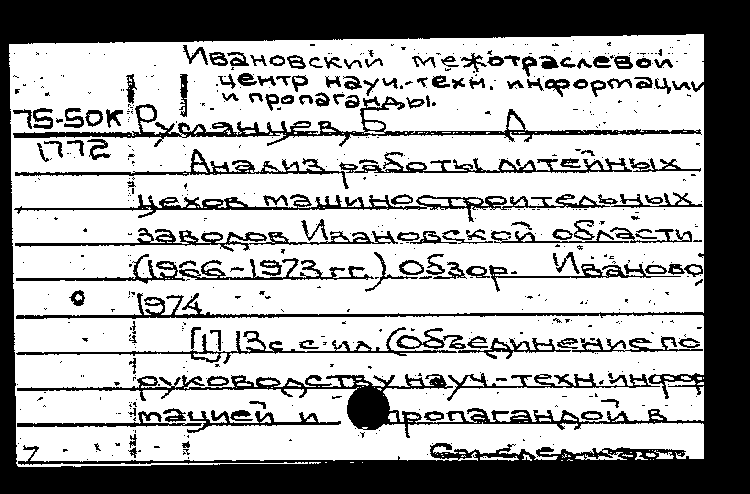 Ивановский межотраслевой
центр науч.-техн. информации
и пропаганды.
75-50К Русланцев, Б Д
1772
Анализ работы литейных
цехов машиностроительных
заводов Ивановской области
(1966-1973 гг.) Обзор. Иваново,
1974.
[1], 13 с. с ил. (Объединение по
руководству науч.-техн. инфор
мацией и пропагандой в
См. след. карт.
7